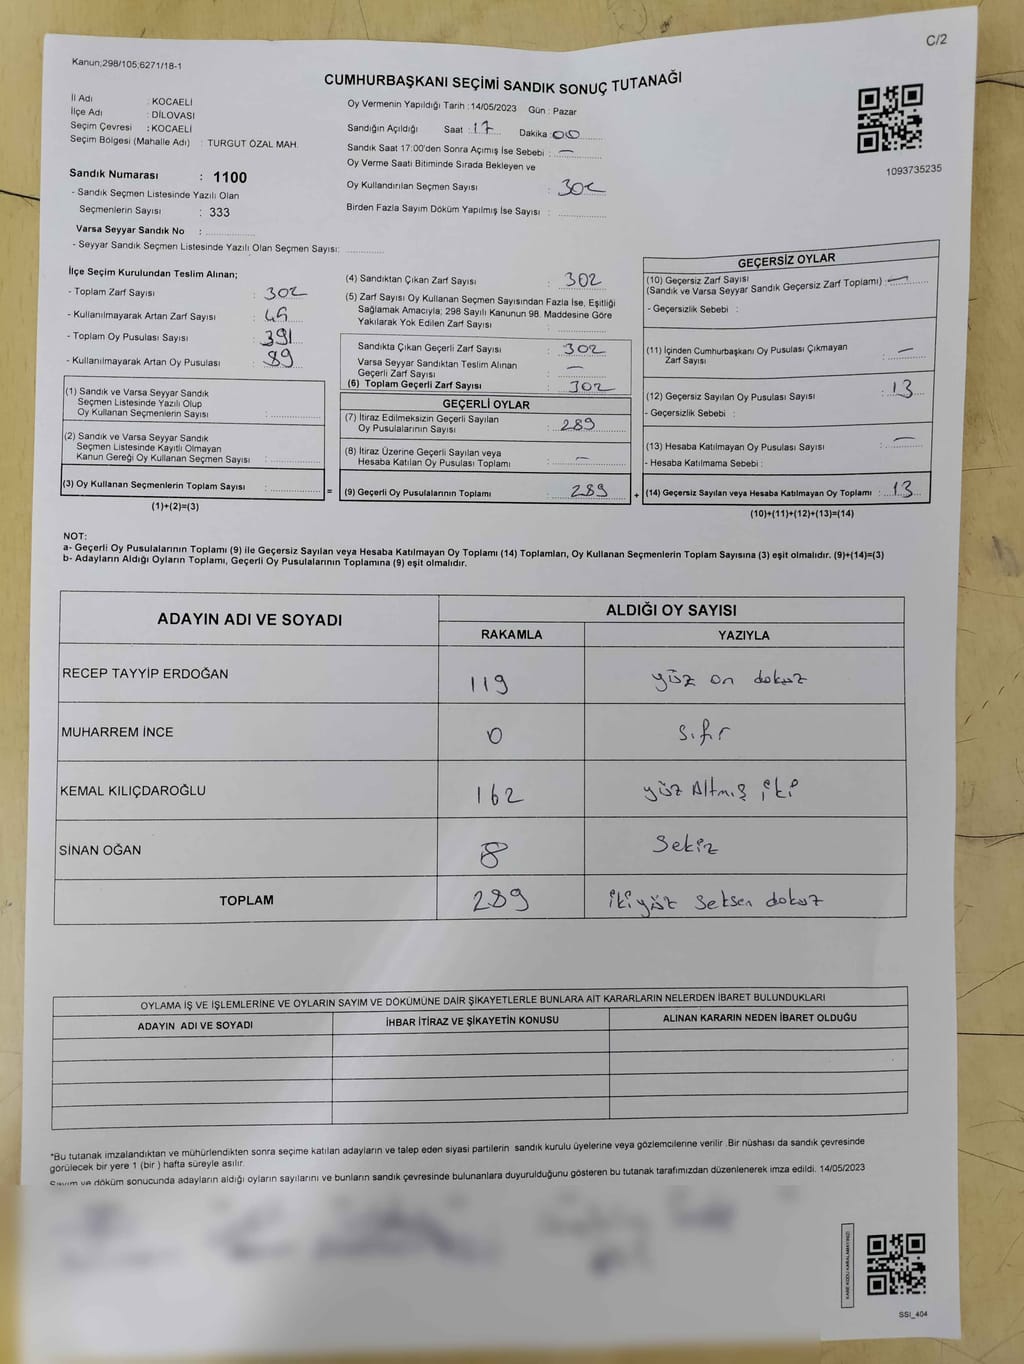 C/2
Kanun;298/105;6271/18-1
CUMHURBAŞKANI SEÇİMİ SANDIK SONUÇ TUTANAĞI
İl Adı : KOCAELİ
İlçe Adı : DİLOVASI
Seçim Çevresi : KOCAELİ
Seçim Bölgesi (Mahalle Adı) : TURGUT ÖZAL MAH.
Sandık Numarası : 1100
- Sandık Seçmen Listesinde Yazılı Olan
Seçmenlerin Sayısı : 333
Varsa Seyyar Sandık No :
- Seyyar Sandık Seçmen Listesinde Yazılı Olan Seçmen Sayısı:
Oy Vermenin Yapıldığı Tarih :14/05/2023 Gün : Pazar
Sandığın Açıldığı Saat : 17 Dakika : 00
Sandık Saat 17:00'den Sonra Açımış İse Sebebi : —
Oy Verme Saati Bitiminde Sırada Bekleyen ve
Oy Kullandırılan Seçmen Sayısı : 302
Birden Fazla Sayım Döküm Yapılmış İse Sayısı :
1093735235
İlçe Seçim Kurulundan Teslim Alınan;
- Toplam Zarf Sayısı : 302
- Kullanılmayarak Artan Zarf Sayısı :
- Toplam Oy Pusulası Sayısı : 391
- Kullanılmayarak Artan Oy Pusulası : 89
(1) Sandık ve Varsa Seyyar Sandık
Seçmen Listesinde Yazılı Olup
Oy Kullanan Seçmenlerin Sayısı :
(2) Sandık ve Varsa Seyyar Sandık
Seçmen Listesinde Kayıtlı Olmayan
Kanun Gereği Oy Kullanan Seçmen Sayısı :
(3) Oy Kullanan Seçmenlerin Toplam Sayısı : =
(1)+(2)=(3)
(4) Sandıktan Çıkan Zarf Sayısı : 302
(5) Zarf Sayısı Oy Kullanan Seçmen Sayısından Fazla İse, Eşitliği
Sağlamak Amacıyla; 298 Sayılı Kanunun 98. Maddesine Göre
Yakılarak Yok Edilen Zarf Sayısı :
Sandıkta Çıkan Geçerli Zarf Sayısı : 302
Varsa Seyyar Sandıktan Teslim Alınan
Geçerli Zarf Sayısı : —
(6) Toplam Geçerli Zarf Sayısı : 302
GEÇERLİ OYLAR
(7) İtiraz Edilmeksizin Geçerli Sayılan
Oy Pusulalarının Sayısı : 289
(8) İtiraz Üzerine Geçerli Sayılan veya
Hesaba Katılan Oy Pusulası Toplamı : —
(9) Geçerli Oy Pusulalarının Toplamı : 289 +
GEÇERSİZ OYLAR
(10) Geçersiz Zarf Sayısı
(Sandık ve Varsa Seyyar Sandık Geçersiz Zarf Toplamı) : —
- Geçersizlik Sebebi :
(11) İçinden Cumhurbaşkanı Oy Pusulası Çıkmayan
Zarf Sayısı : —
(12) Geçersiz Sayılan Oy Pusulası Sayısı : 13
- Geçersizlik Sebebi :
(13) Hesaba Katılmayan Oy Pusulası Sayısı : —
- Hesaba Katılmama Sebebi :
(14) Geçersiz Sayılan veya Hesaba Katılmayan Oy Toplamı : 13
(10)+(11)+(12)+(13)=(14)
NOT:
a- Geçerli Oy Pusulalarının Toplamı (9) ile Geçersiz Sayılan veya Hesaba Katılmayan Oy Toplamı (14) Toplamları, Oy Kullanan Seçmenlerin Toplam Sayısına (3) eşit olmalıdır. (9)+(14)=(3)
b- Adayların Aldığı Oyların Toplamı, Geçerli Oy Pusulalarının Toplamına (9) eşit olmalıdır.
ADAYIN ADI VE SOYADI ALDIĞI OY SAYISI
RAKAMLA YAZIYLA
RECEP TAYYİP ERDOĞAN 119 yüz on dokuz
MUHARREM İNCE 0 sıfır
KEMAL KILIÇDAROĞLU 162 yüz Altmış iki
SİNAN OĞAN 8 Sekiz
TOPLAM 289 iki yüz seksen dokuz
OYLAMA İŞ VE İŞLEMLERİNE VE OYLARIN SAYIM VE DÖKÜMÜNE DAİR ŞİKAYETLERLE BUNLARA AİT KARARLARIN NELERDEN İBARET BULUNDUKLARI
ADAYIN ADI VE SOYADI İHBAR İTİRAZ VE ŞİKAYETİN KONUSU ALINAN KARARIN NEDEN İBARET OLDUĞU
*Bu tutanak imzalandıktan ve mühürlendikten sonra seçime katılan adayların ve talep eden siyasi partilerin sandık kurulu üyelerine veya gözlemcilerine verilir .Bir nüshası da sandık çevresinde
görülecek bir yere 1 (bir ) hafta süreyle asılır.
Sayım ve döküm sonucunda adayların aldığı oyların sayılarını ve bunların sandık çevresinde bulunanlara duyurulduğunu gösteren bu tutanak tarafımızdan düzenlenerek imza edildi. 14/05/2023
KARE KODU KARALAMAYINIZ!
SSI_404